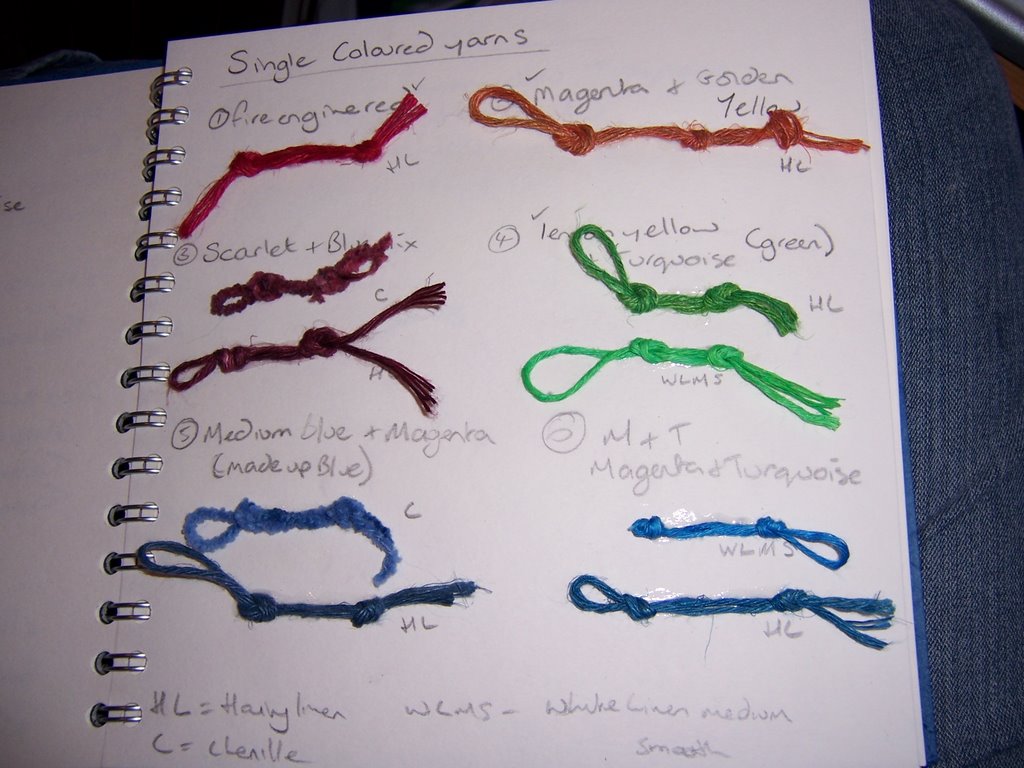 Single Coloured yarns
① fire engine red ✓
HL
✓ Magenta + Golden
Yellow
HL
③ Scarlet + Blue mix
C
④ ✓ yellow (green)
Turquoise
HL
WLMS
⑤ Medium blue + Magenta
(made up Blue)
C
HL
⑥ M + T
Magenta + Turquoise
WLMS
HL
HL = Hairy linen
C = Chenille
WLMS - White Linen medium
Smooth
se